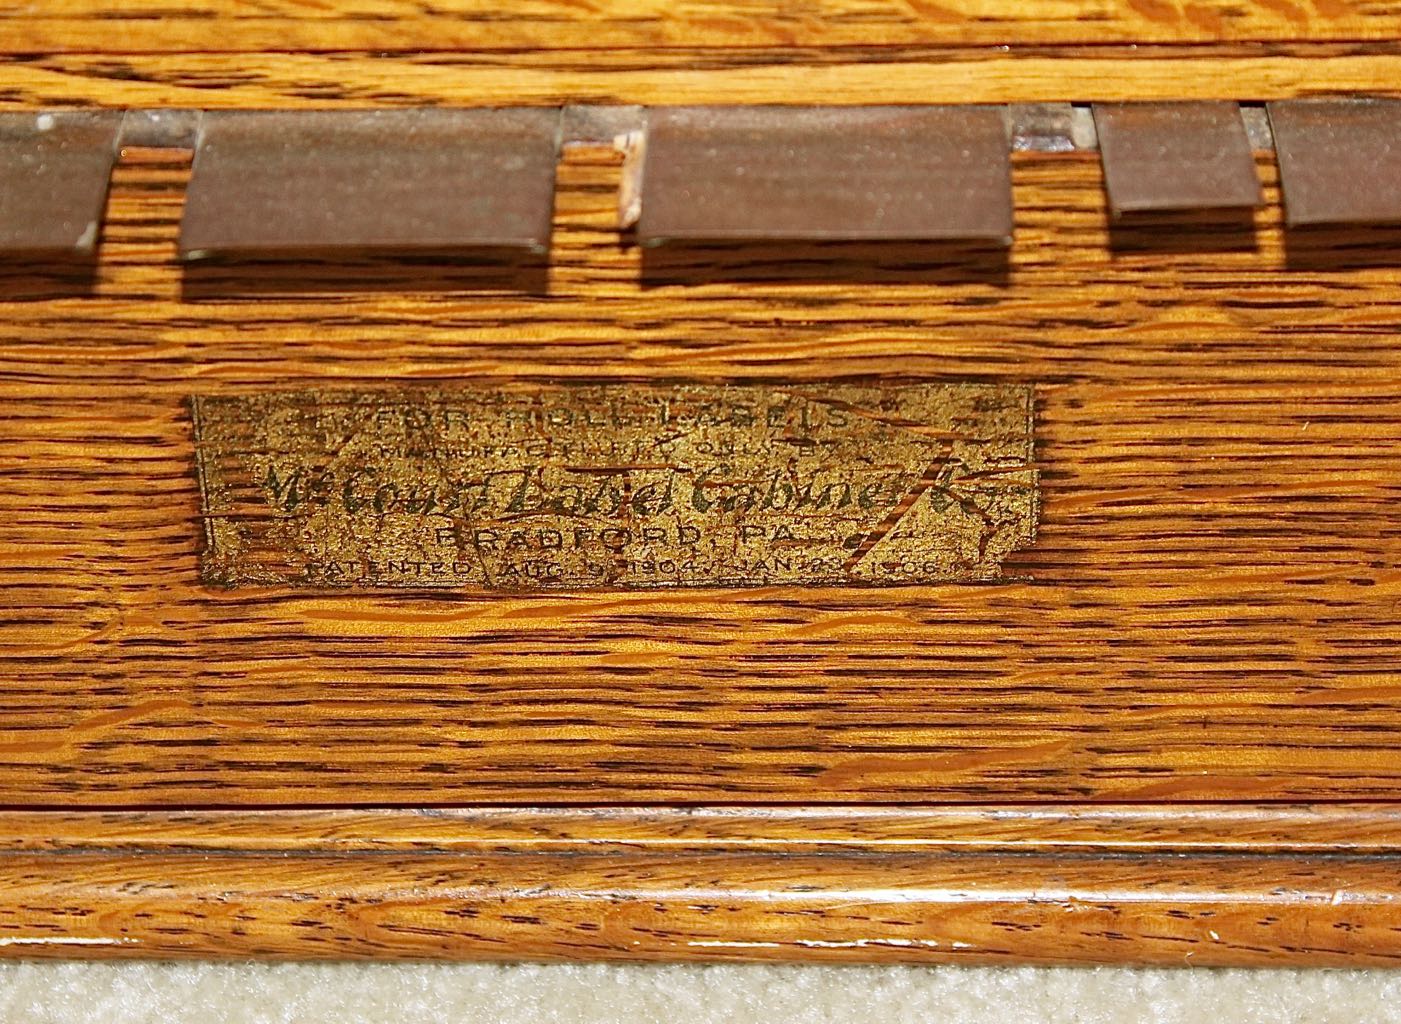 FOR ROLL LABELS
MANUFACTURED ONLY BY
McCourt Label Cabinet Co.
BRADFORD, PA.
PATENTED AUG. 9, 1904, JAN 23, 1906.